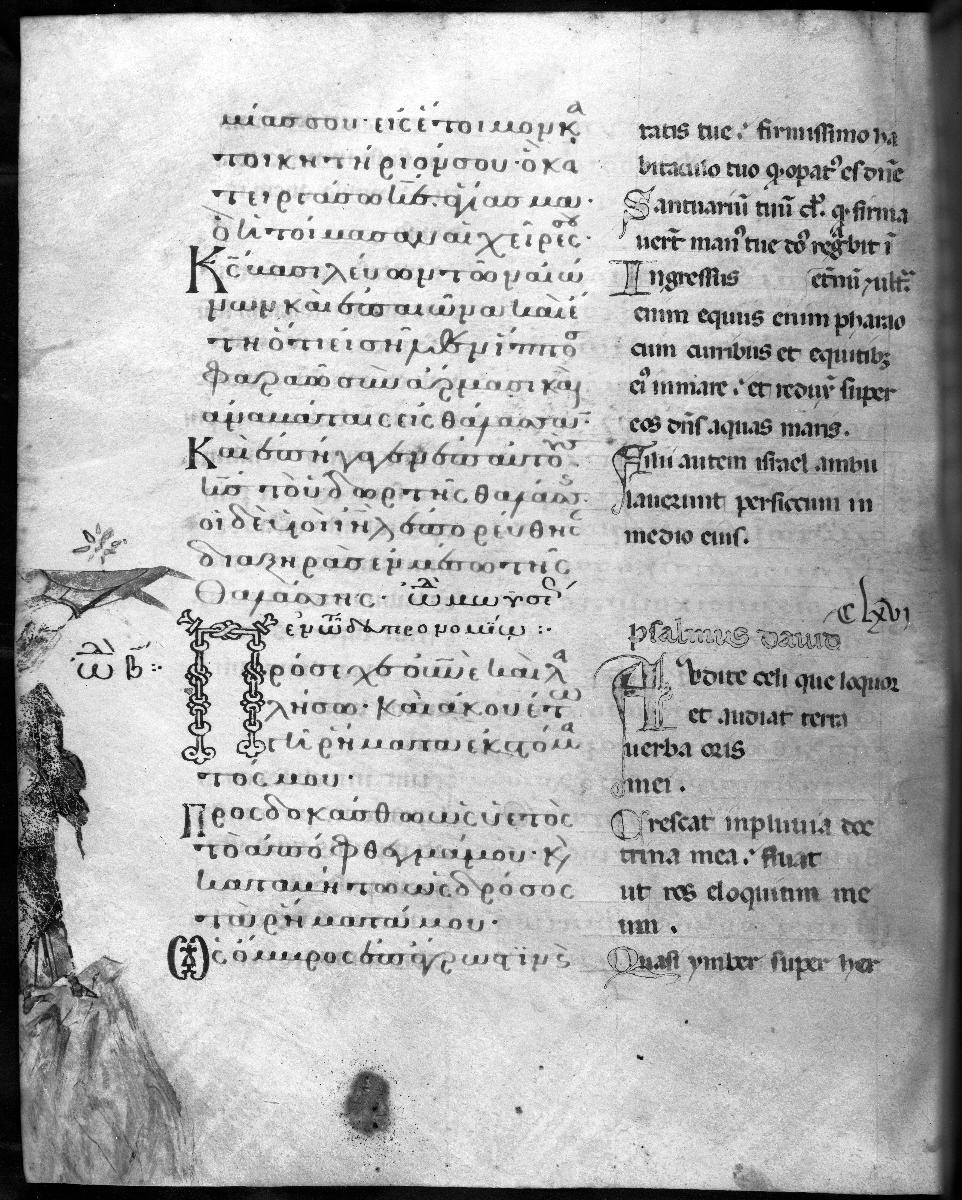 μίας σου· εἰς ἕτοιμον κα
τοικητήριόν σου· ὃ κα
τειργάσω κ̅ε̅· ἁγίασμα·
ὃ ἡτοίμασαν αἱ χεῖρές σου·
Κ̅ς̅ βασιλεύων τῶν αἰώ
νων καὶ ἐπ αἰῶνα καὶ ἔ
τι· ὅτι εἰσῆλθεν ἵππος
φαραὼ σὺν ἅρμασι καὶ
ἀναβάταις εἰς θάλασσαν·
Καὶ ἐπήγαγεν ἐπ αὐτοὺς
κ̅ς̅ τὸ ὕδωρ τῆς θαλάσσης·
οἱ δὲ υἱοὶ ι̅η̅λ̅ ἐπορεύθησαν
διὰ ξηρᾶς ἐν μέσῳ τῆς
θαλάσσης· ὠδὴ μωυσέως
ἐν τῷ δευτερονομίῳ :·
ὠδ β :·
Πρόσεχε οὐνε καὶ λα
λήσω· καὶ ἀκουέτω
γῆ ῥήματα ἐκ στόμα
τός μου
Προσδοκάσθω ὡς ὑετὸς
τὸ ἀπόφθεγμά μου· κ
καταβήτω ὡς δρόσος
τὰ ῥήματά μου·
Ὡς ὄμβρος ἐπ ἄγρωστιν
tatis tue : firmissimo ha
bitaculo tuo q opat es dñe
Santuariũ tuũ firma
uert man tue regbit ĩ
Ingressus
enim equus enim pharao
cum curribus et equitib;
ei inmare : et reduxr super
eos dñs aquas maris.
Filii autem israel ambu
lauerunt persiccum in
medio eius.
C lxvi
psalmus dauid
Audite celi que loquor
et audiat terra
uerba oris
mei.
Crescat inpluuia doc
trina mea : fluat
ut ros eloquium me
um.
Quasi ymber super her